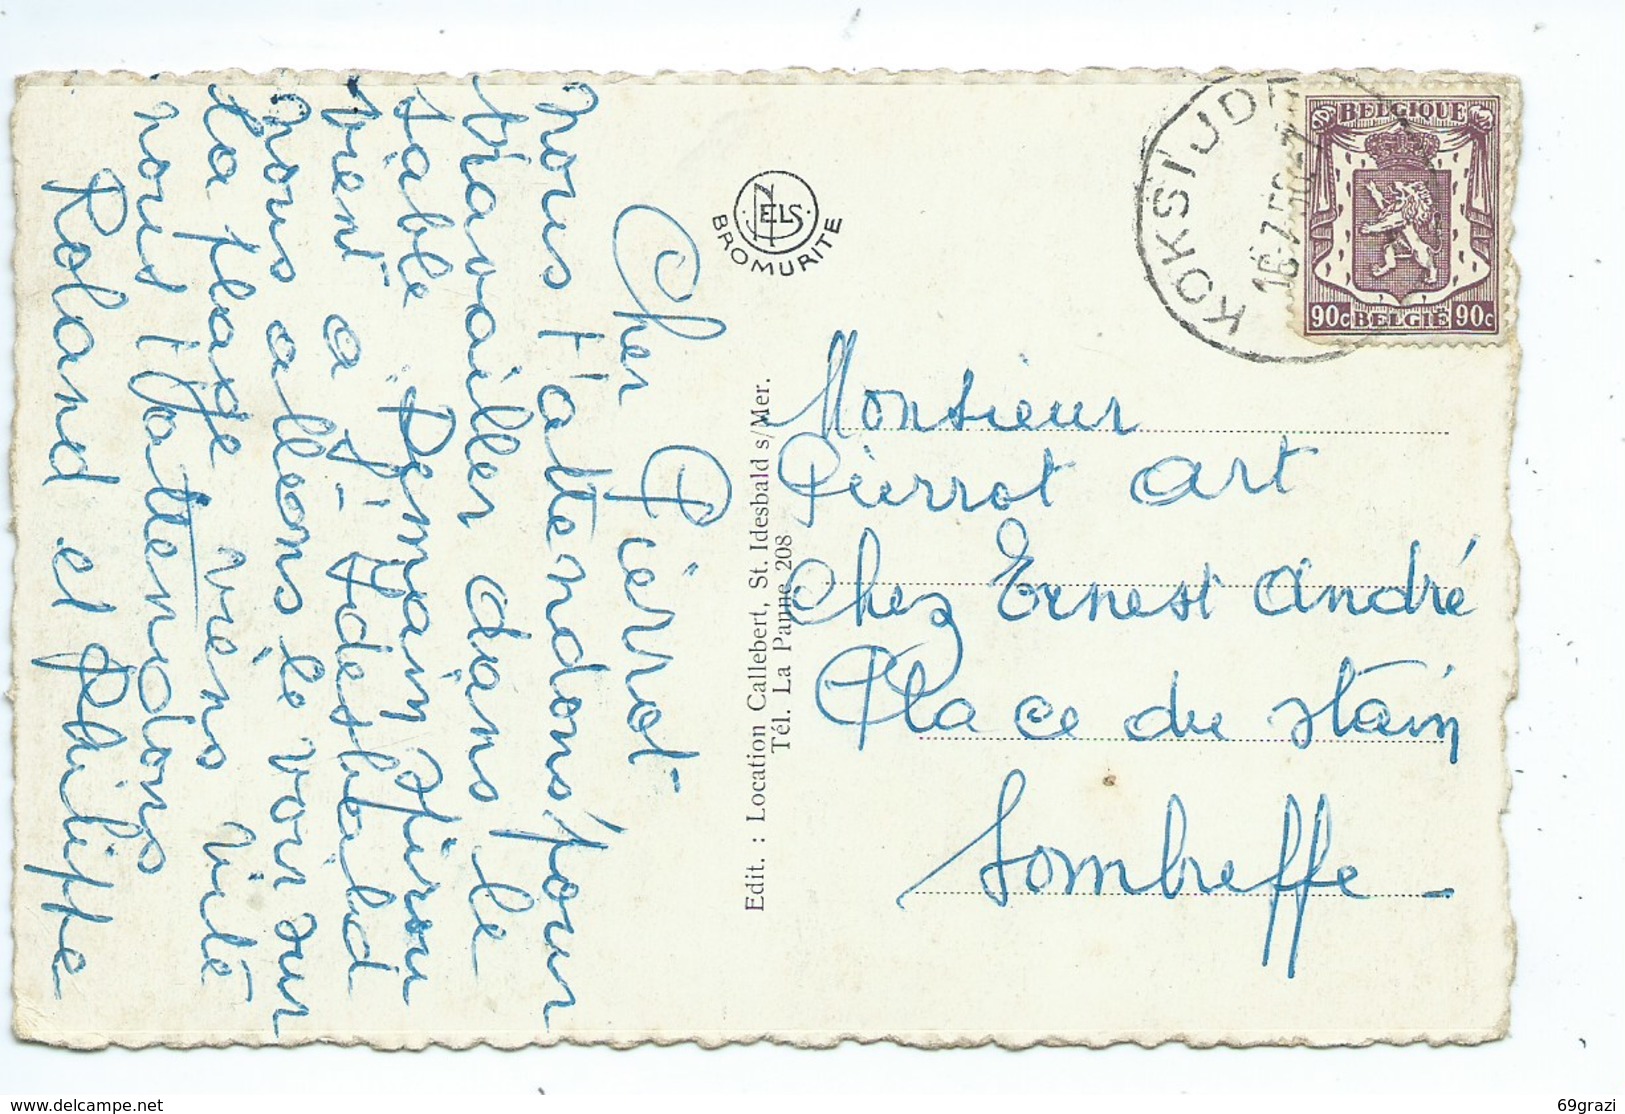 Cher Pierrot
Nous t'attendons pour
travailler dans le
sable. Demain spirou
vient à St Idesbald
nous allons le voir sur
la plage viens vite
nous t'attendons
Roland et Philippe
NELS
BROMURITE
Edit. : Location Callebert, St. Idesbald s/Mer.
Tél. La Panne 208
KOKSIJDE
16-7
BELGIQUE
90c BELGIË 90c
Monsieur
Pierrot Art
Chez Ernest André
Place du Stain
Sombreffe
delcampe.net
69grazi